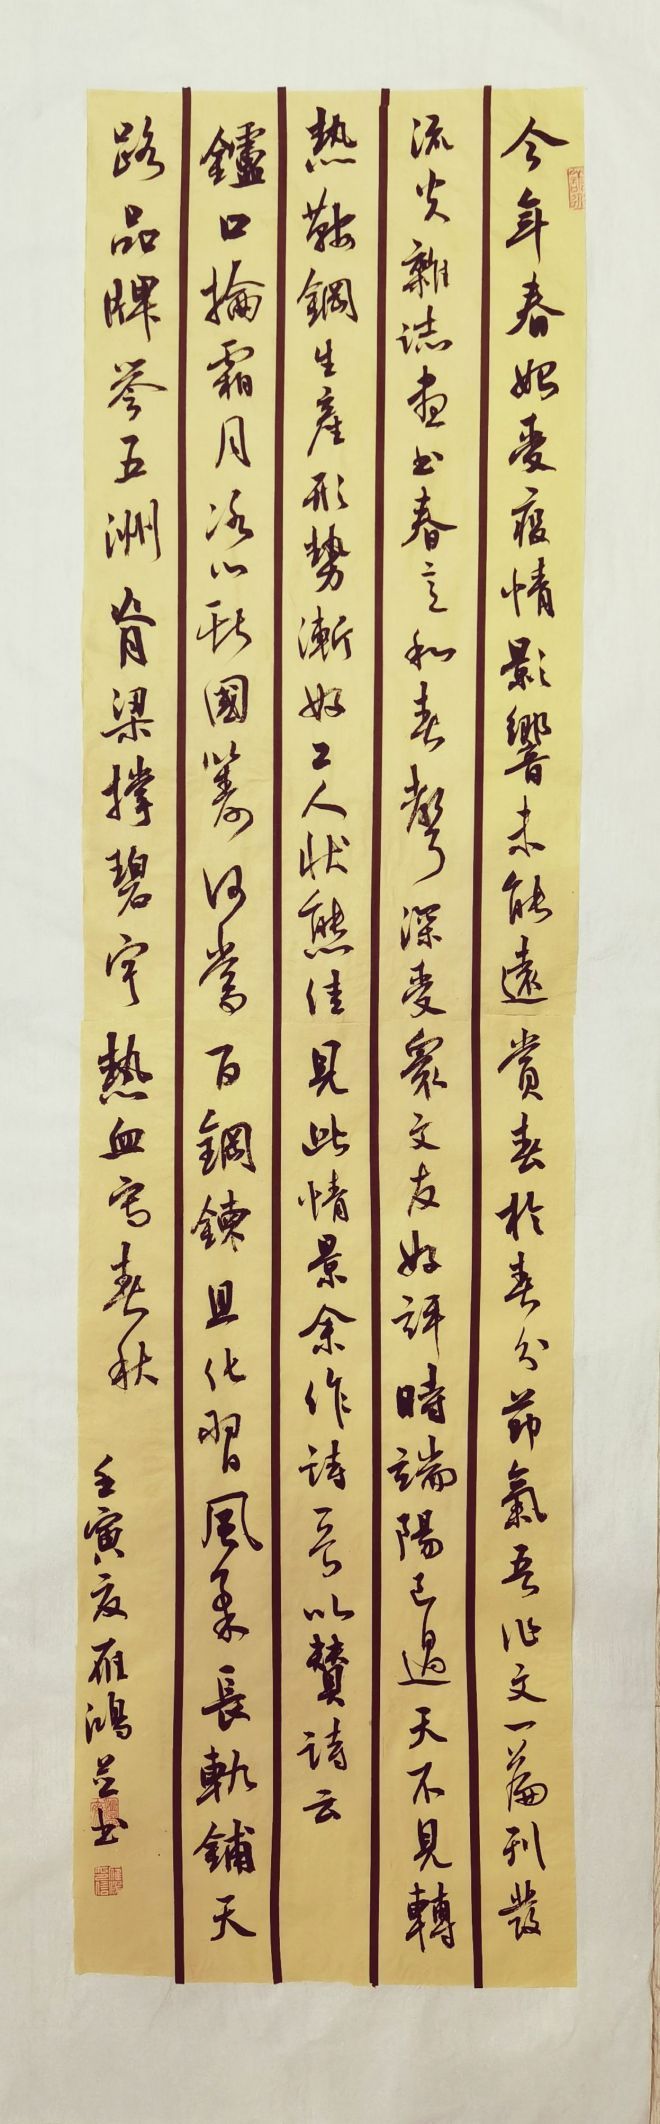 今年春始受疫情影響未能遠賞春於春分節氣吾作文一篇刊發
流火雜誌畫出春意和春聲深受眾文友好評時端陽已過天不見轉
熱鞍鋼生產形勢漸好工人狀態佳見此情景余作詩一首以贊詩云
鑪口掄霜月冰心耿國籌何嘗百鋼鍊且化習風柔長軌鋪天
路品牌譽五洲脊梁撐碧宇熱血寫春秋
壬寅夏雁鴻並書